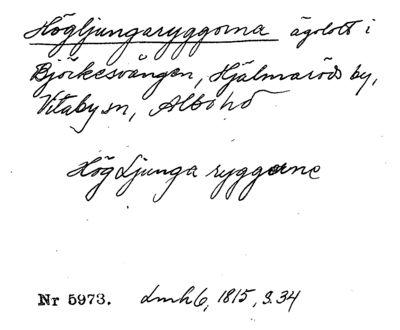 Högljungaryggorna ägolott i
Björkesvången, Hjälmaröds by,
Vitaby sn, Albo hd
Hög Ljunga ryggerne
Nr 5973. Lmh 6, 1815, s. 34